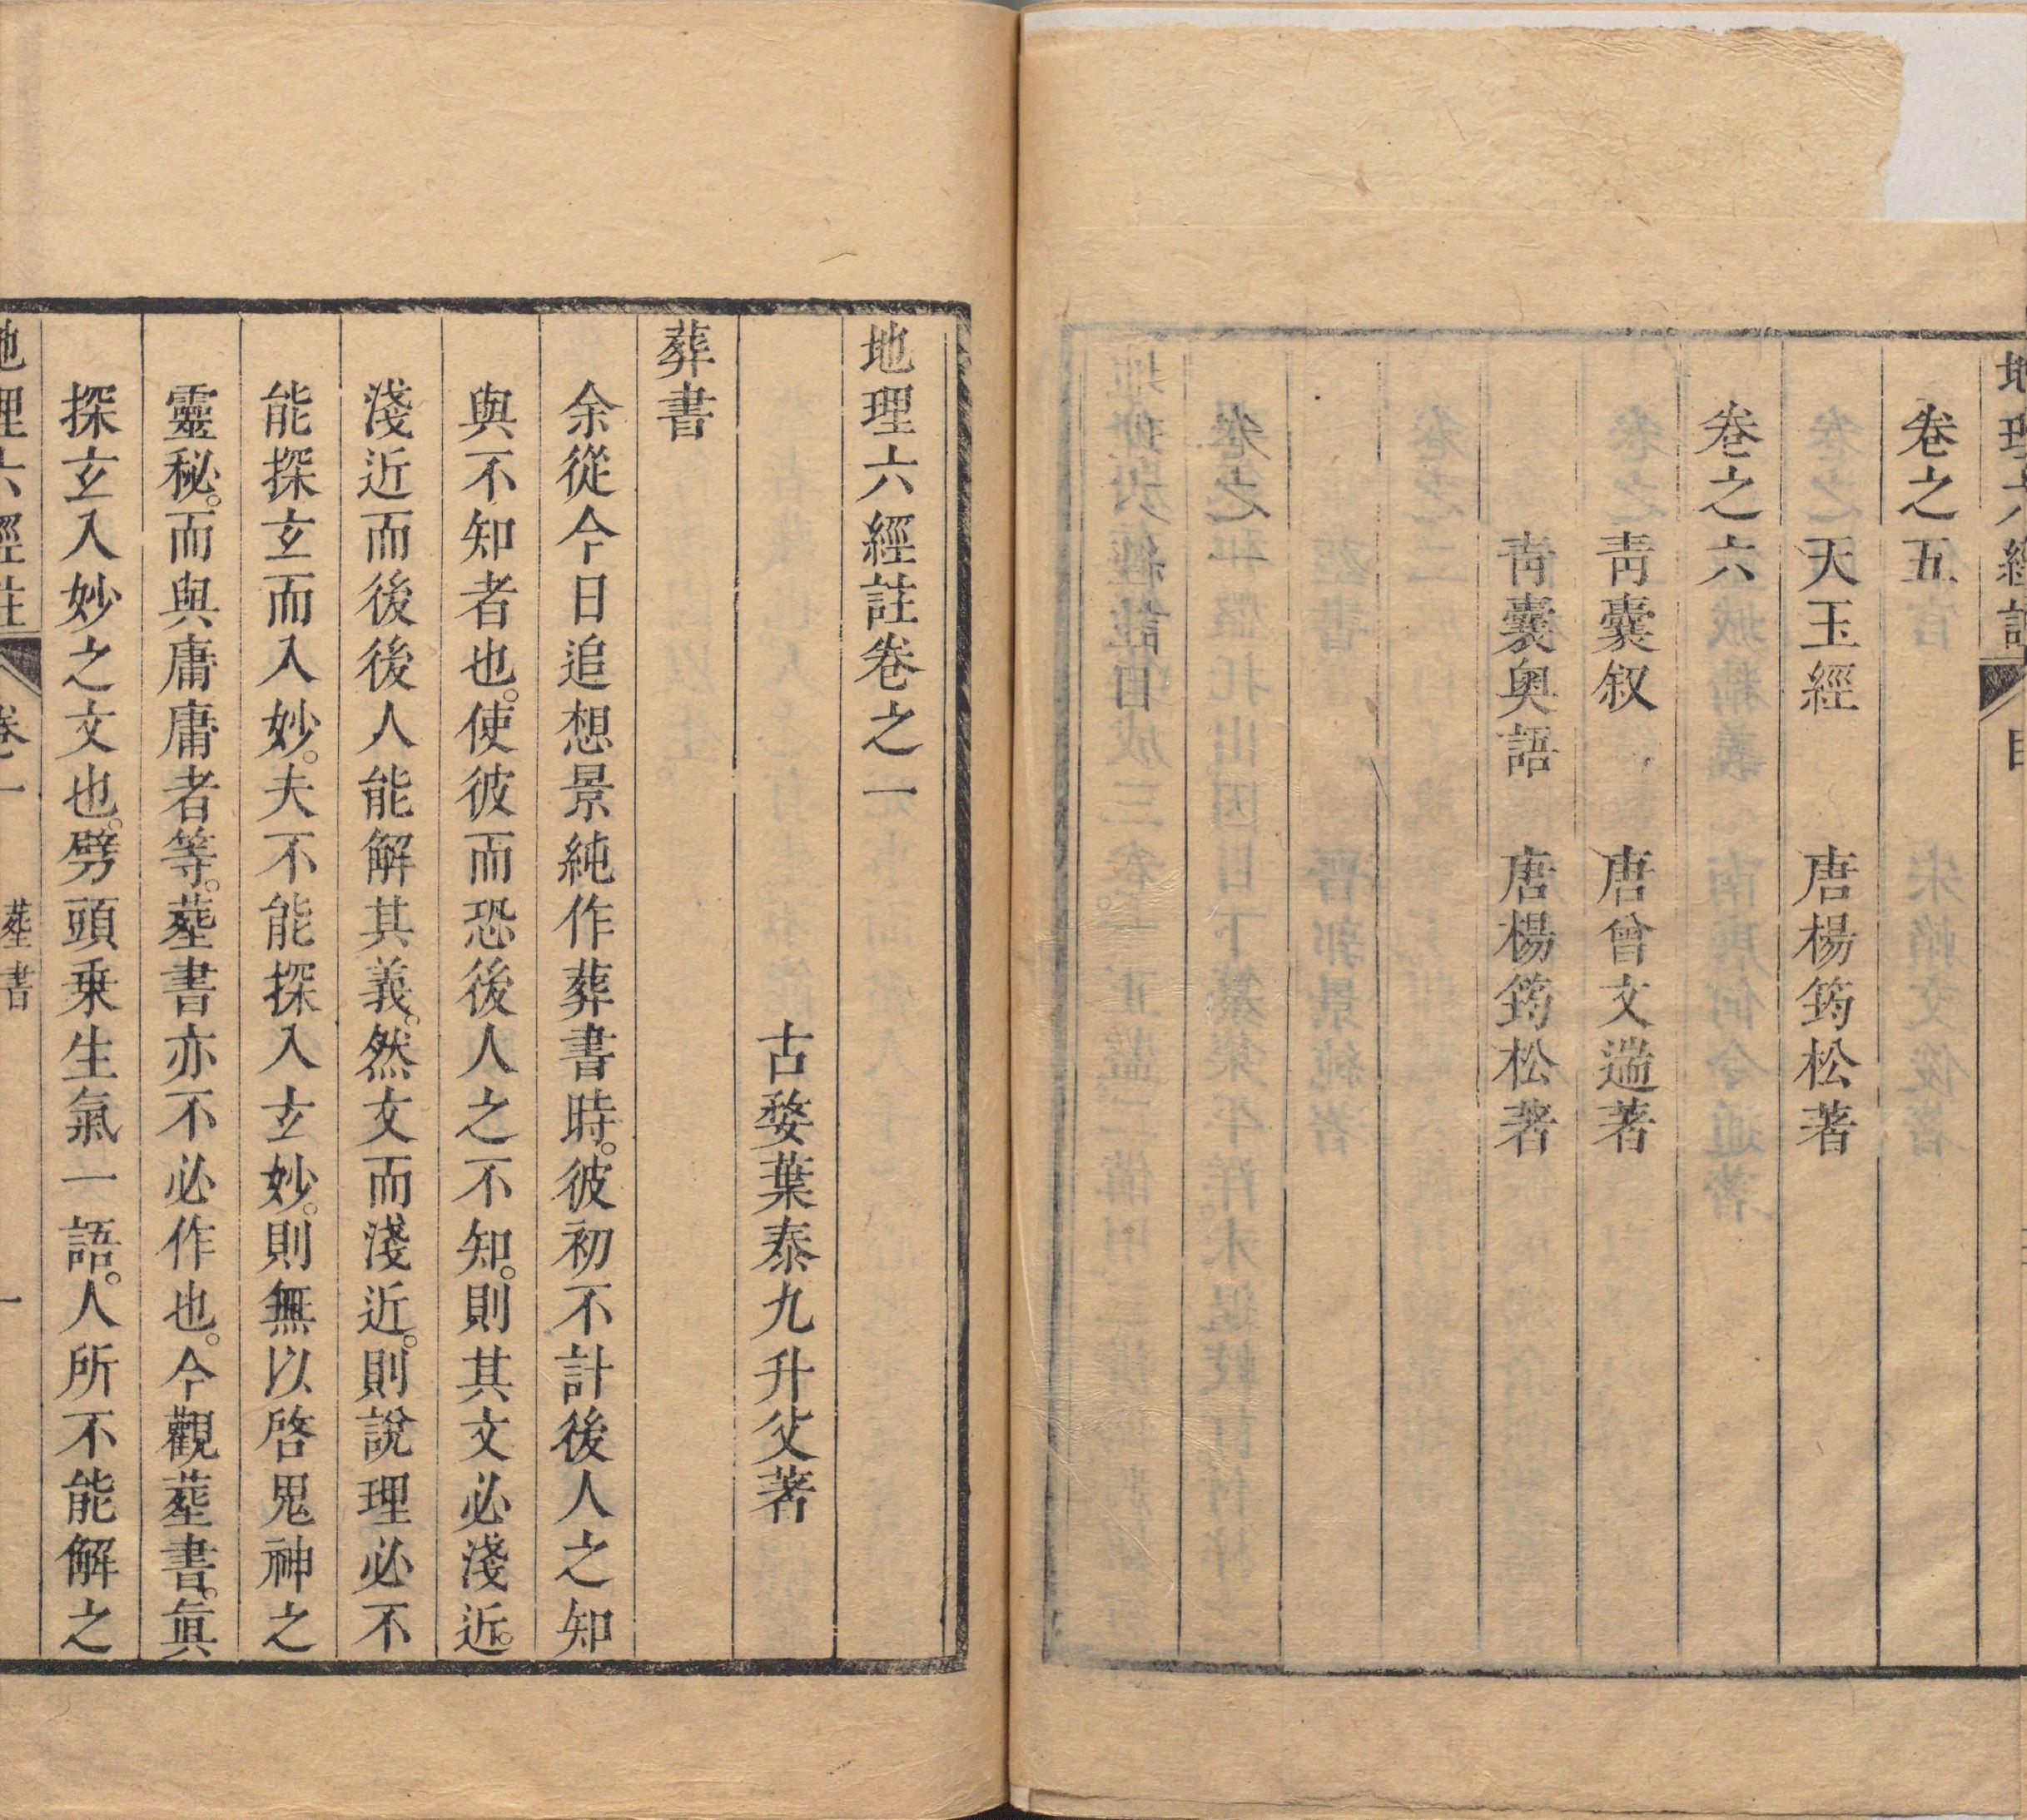 卷之五
天玉經　唐楊筠松著
卷之六
靑囊叙　唐曾文辿著
靑囊奥語　唐楊筠松著
地理六經註卷之一
古婺葉泰九升父著
葬書
余從今日追想景純作葬書時。彼初不計後人之知
與不知者也。使彼而恐後人之不知。則其文必淺近。
淺近而後後人能解其義。然文而淺近。則說理必不
能探玄而入妙。夫不能探入玄妙。則無以啓鬼神之
靈秘。而與庸庸者等。塟書亦不必作也。今觀塟書。眞
探玄入妙之文也。劈頭乗生氣一語。人所不能解之
地理六經註　卷一　塟書　一